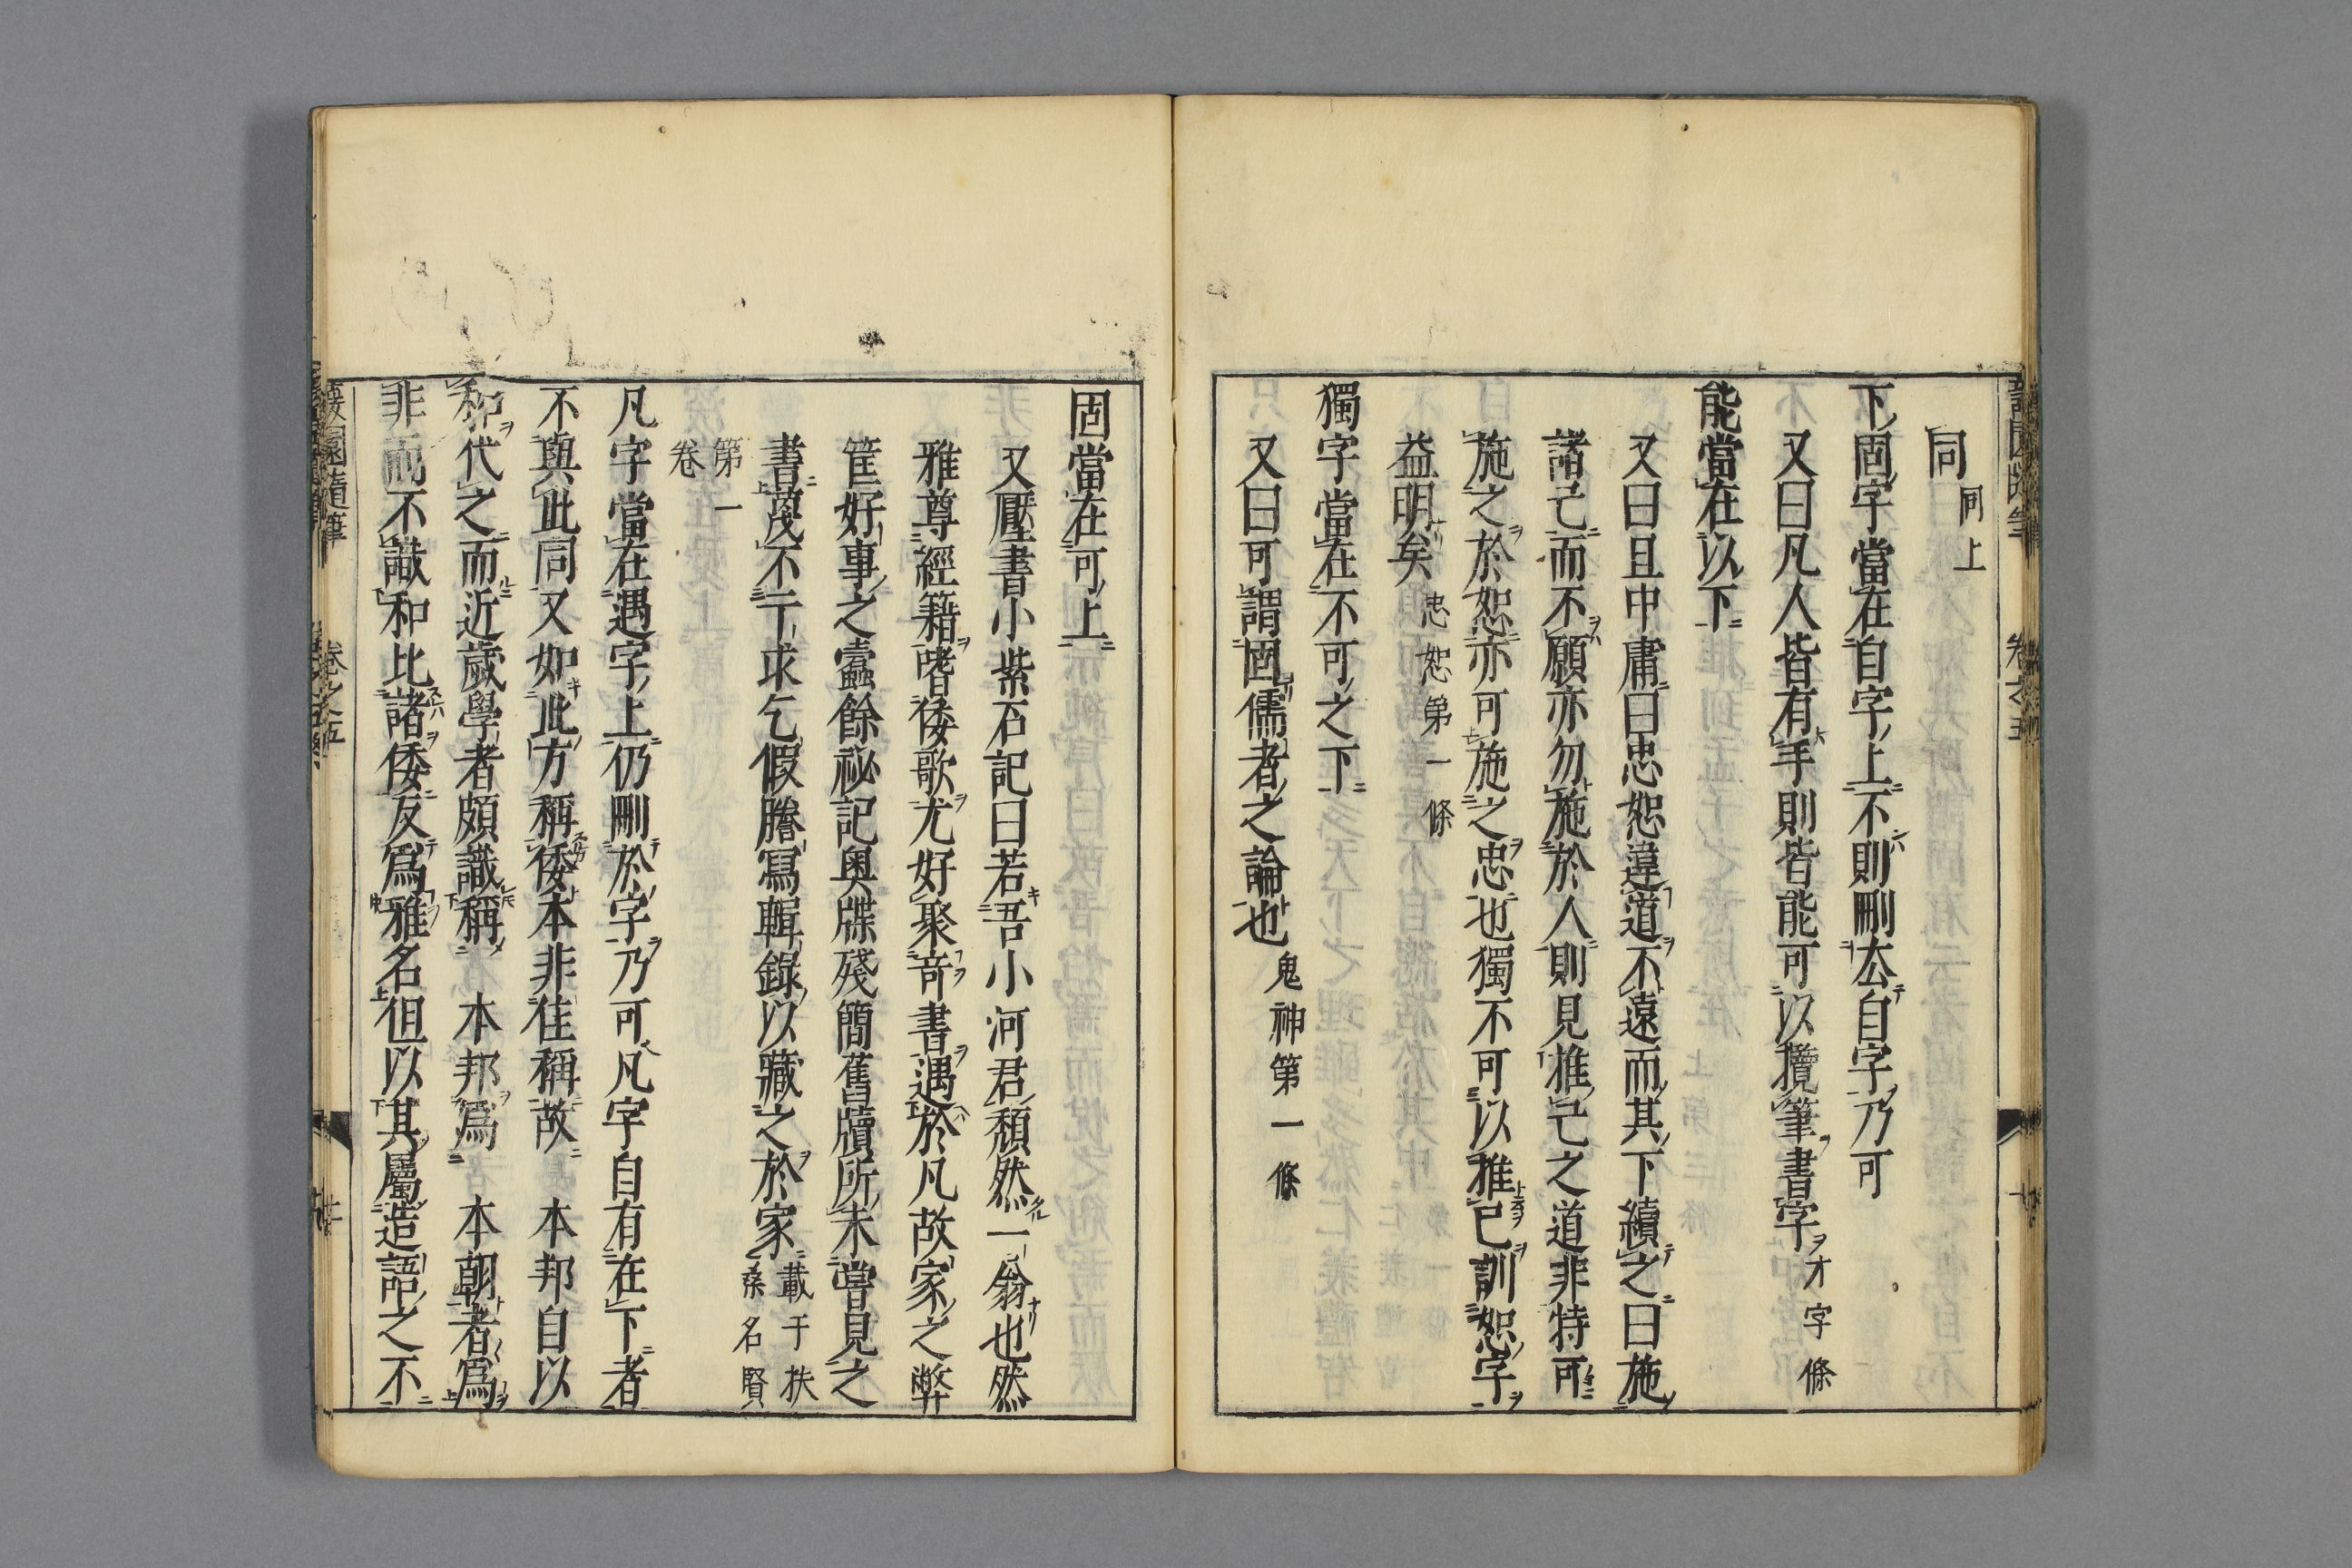 同 同上
下固字當在自字上不則刪厺自字乃可
又曰凡人皆有手則皆能可以攬筆書字 才字條
能當在以下
又曰且中庸曰忠恕違道不遠而其下續之曰施
諸己而不願亦勿施於人則見推己之道非特可
施之於恕亦可施之忠也獨不可以推己訓恕字
益明矣 忠恕第一條
獨字當在不可之下
又曰可謂固儒者之論也 鬼神第一條
固當在可上
又壓書小紫石記曰若吾小河君頹然一翁也然
雅尊經籍嗜倭歌尤好聚奇書遇於凡故家之弊
筐好事之蠹餘祕記奥牒殘簡舊牘所未嘗見之
書莫不一一求乞假謄寫輯錄以藏之於家 載于扶桑名賢
第一卷
凡字當在遇字上仍刪於字乃可凡字自有在下者
不與此同又如此方稱倭本非佳稱故 本邦自以
和代之而近歲學者頗識稱 本邦爲 本朝者爲
非而不識和比諸倭反爲雅名但以其屬造語之不
蘐園隨筆 卷之五
卷之五